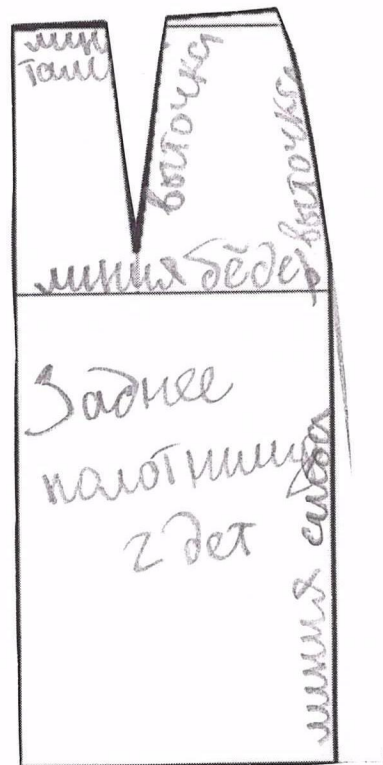 лин
тали
выточка
выточка
линия бёдер
Заднее
полотнищ
2 дет
линия сгиба